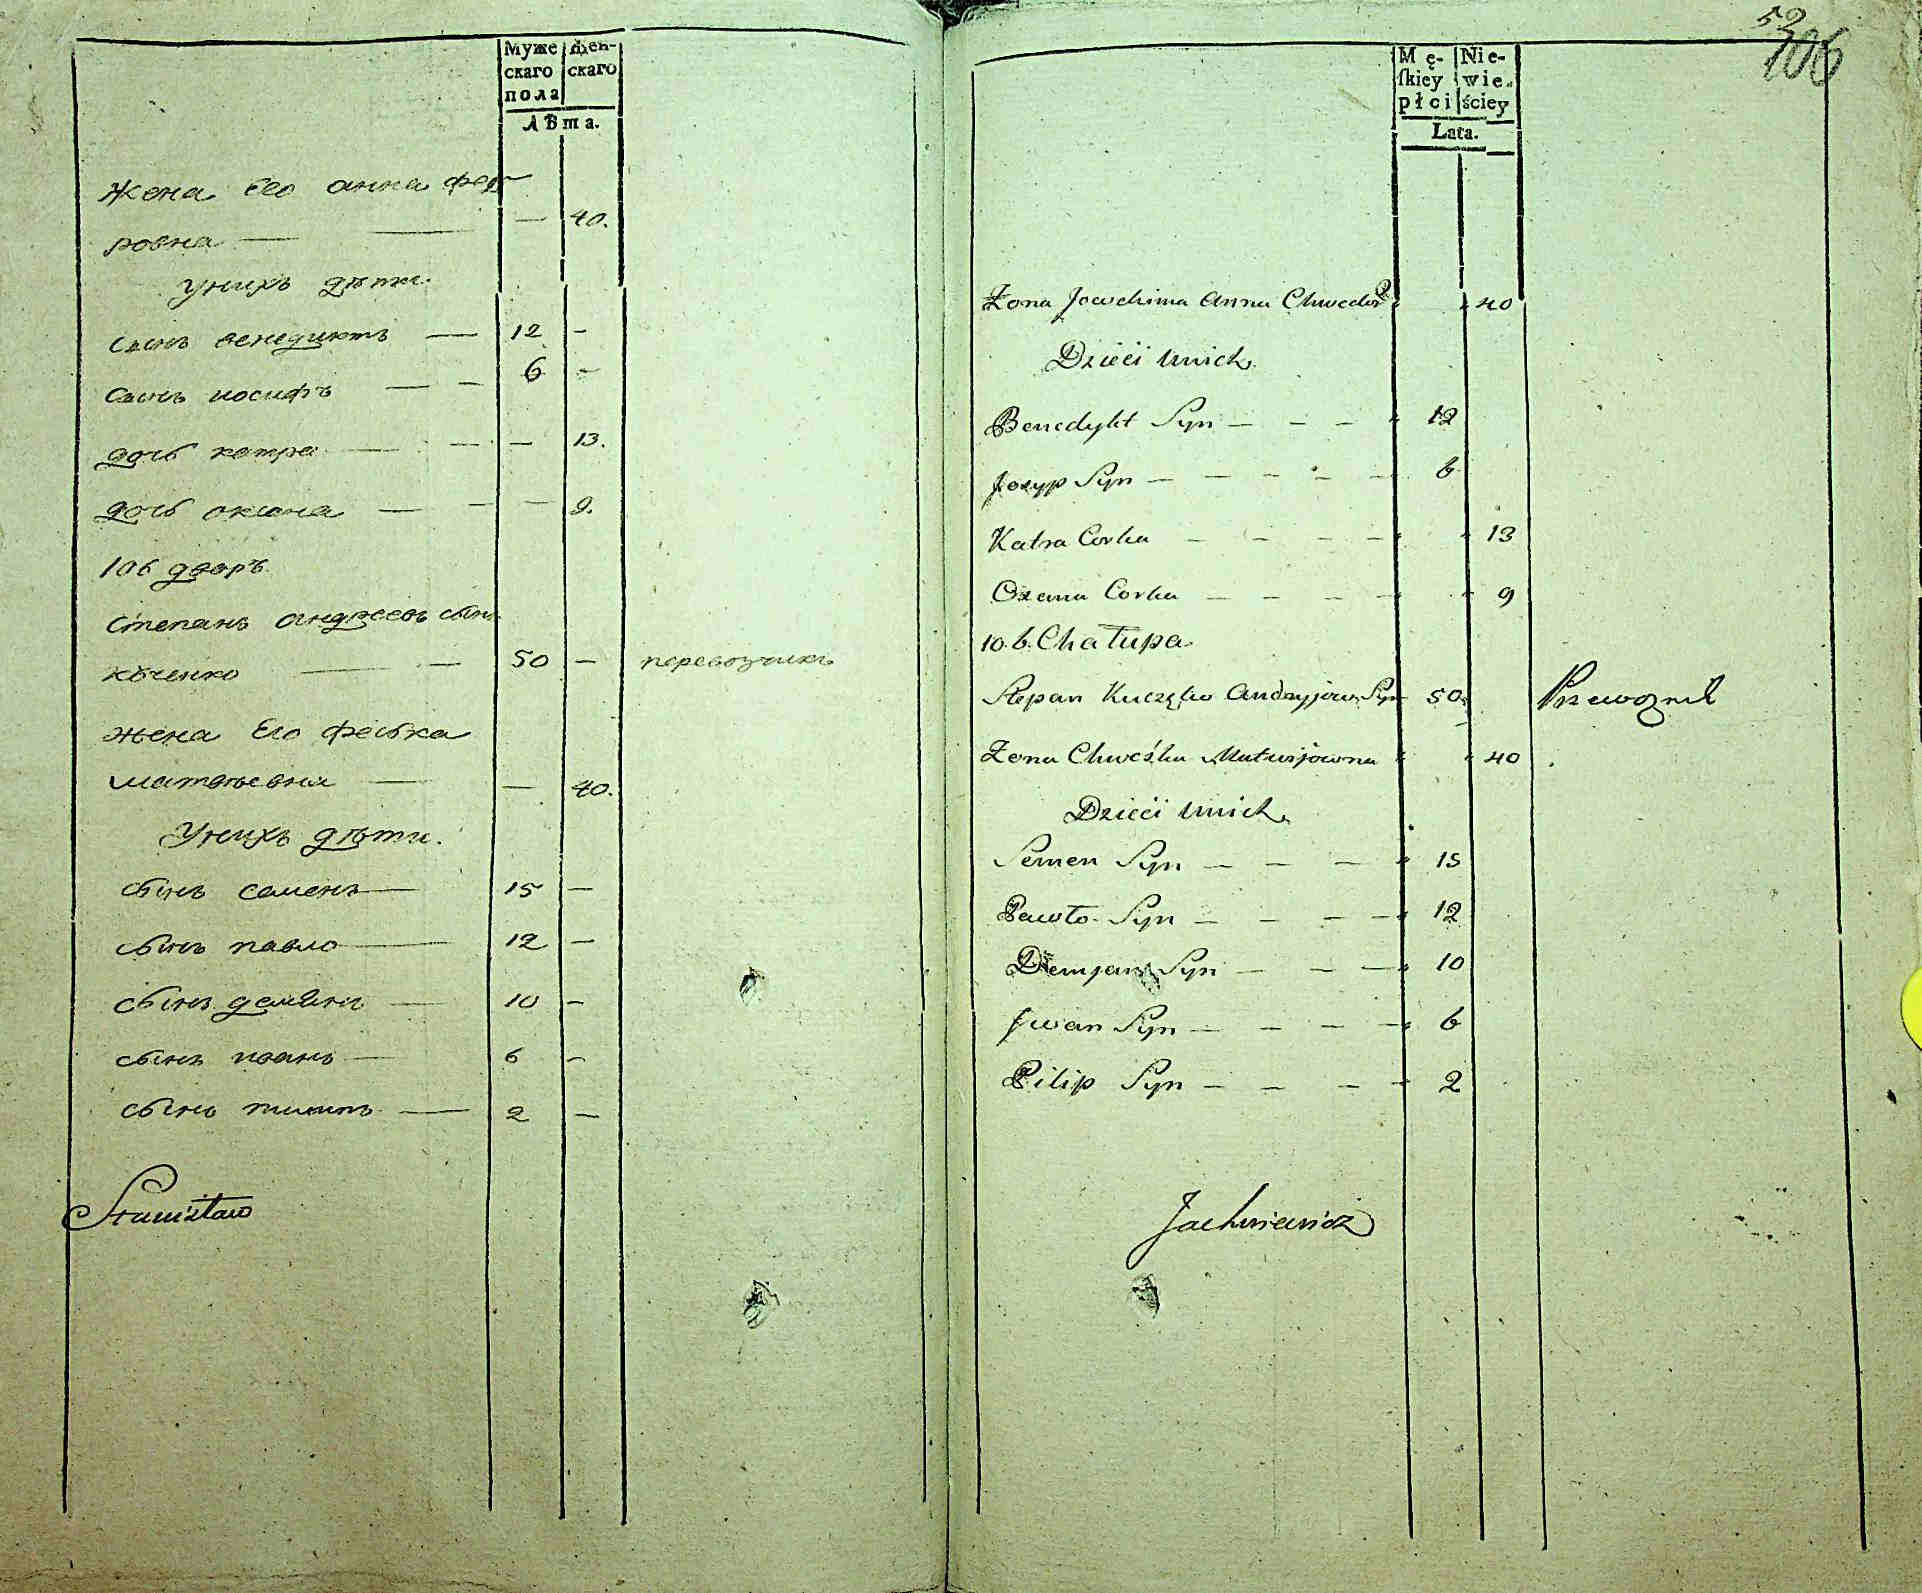 Муже
скаго
пола
Жен-
скаго
Лѣта.
Жена Его анна фед
ровна — — — 40.
Унихъ дѣти.
Сынъ венедиктъ — 12 -
Сынъ иосифъ — — 6 -
дочь катра — — — 13.
дочь оксана — — — 9.
106 дворъ
Степанъ андреевъ сынъ
кученко — — 50 — перевозчикъ
жена Его феська
матвѣевна — — 40.
Унихъ дѣти.
сынъ семенъ — 15 —
сынъ павло — 12 —
сынъ демянъ — 10 -
сынъ иванъ — 6 -
сынъ пилипъ — 2 —
Stanisław
52
106
Mę-
ſkiey
płci
Nie-
wie-
ściey
Lata.
Żona Jowchima Anna Chwedor 40
Dzieci unich
Benedykt Syn — — — 12
Jozyp Syn — — — — 6
Katra Corka — — — — 13
Oxana Corka — — — — 9
106. Chałupa
Stepan Kuczęko Andryjów Syn 50 Przewoznik
Żona Chweśka Matwijowna 40
Dzieci unich
Semen Syn — — — 15
Pawło Syn — — — 12
Demjan Syn — — — 10
Jwan Syn — — — 6
Pilip Syn — — — 2
Jachniewicz